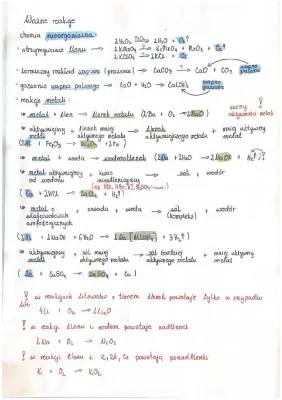 Ważne reakcje
chemia nieorganiczna
2H₂O₂ MnO₂→ 2H₂O + O₂↑
· otrzymywanie tlenu → 2KMnO₄ T→ K₂MnO₄ + MnO₂ + O₂↑
2KClO₃ T→ 2KCl + O₂
· termiczny rozkład wapieni (prażenie) → CaCO₃ T→ CaO + CO₂ wapno palone
· gaszenie wapna palonego → CaO + H₂O → Ca(OH)₂ wapno gaszone
· reakcje metali:
- metal + tlen → tlenek metalu (2Ba + O₂ → 2BaO)
szereg aktywności metali
- aktywniejszy metal + tlenek mniej aktywnego metalu → tlenek aktywniejszego metalu + mniej aktywny metal
+ Fe₂O₃ → + 2Fe)
- metal + woda → wodorotlenek (2Na + 2H₂O → 2NaOH + H₂↑)
- metal aktywniejszy od wodoru + kwas nieutleniający → sól + wodór
+ 2HCl → + H₂↑)
- metal o właściwościach amfoterycznych + zasada + woda → sól (kompleks) + wodór
(2Al + 2NaOH + 6H₂O → 2Na[Al(OH)₄] + 3H₂↑)
- aktywniejszy metal + sól mniej aktywnego metalu → sól bardziej aktywnego metalu + mniej aktywny metal
(Zn + CuSO₄ → ZnSO₄ + Cu)
! w reakcjach litowców z tlenem tlenek powstaje tylko w przypadku litu
4Li + O₂ → 2Li₂O
! w reakcji tlenu z sodem powstaje nadtlenek
2Na + O₂ → Na₂O₂
! w reakcji tlenu z K, Rb, Cs powstają ponadtlenki
K + O₂ → KO₂